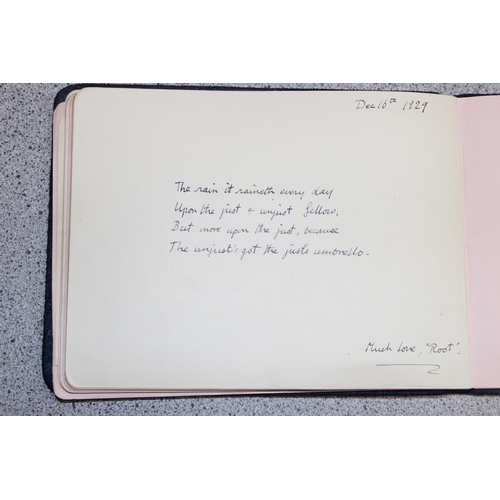 Dec 16th 1929
The rain it raineth every day
Upon the just + unjust fellow,
But more upon the just, because
The unjust's got the just's umbrello.
Much love, "Root".